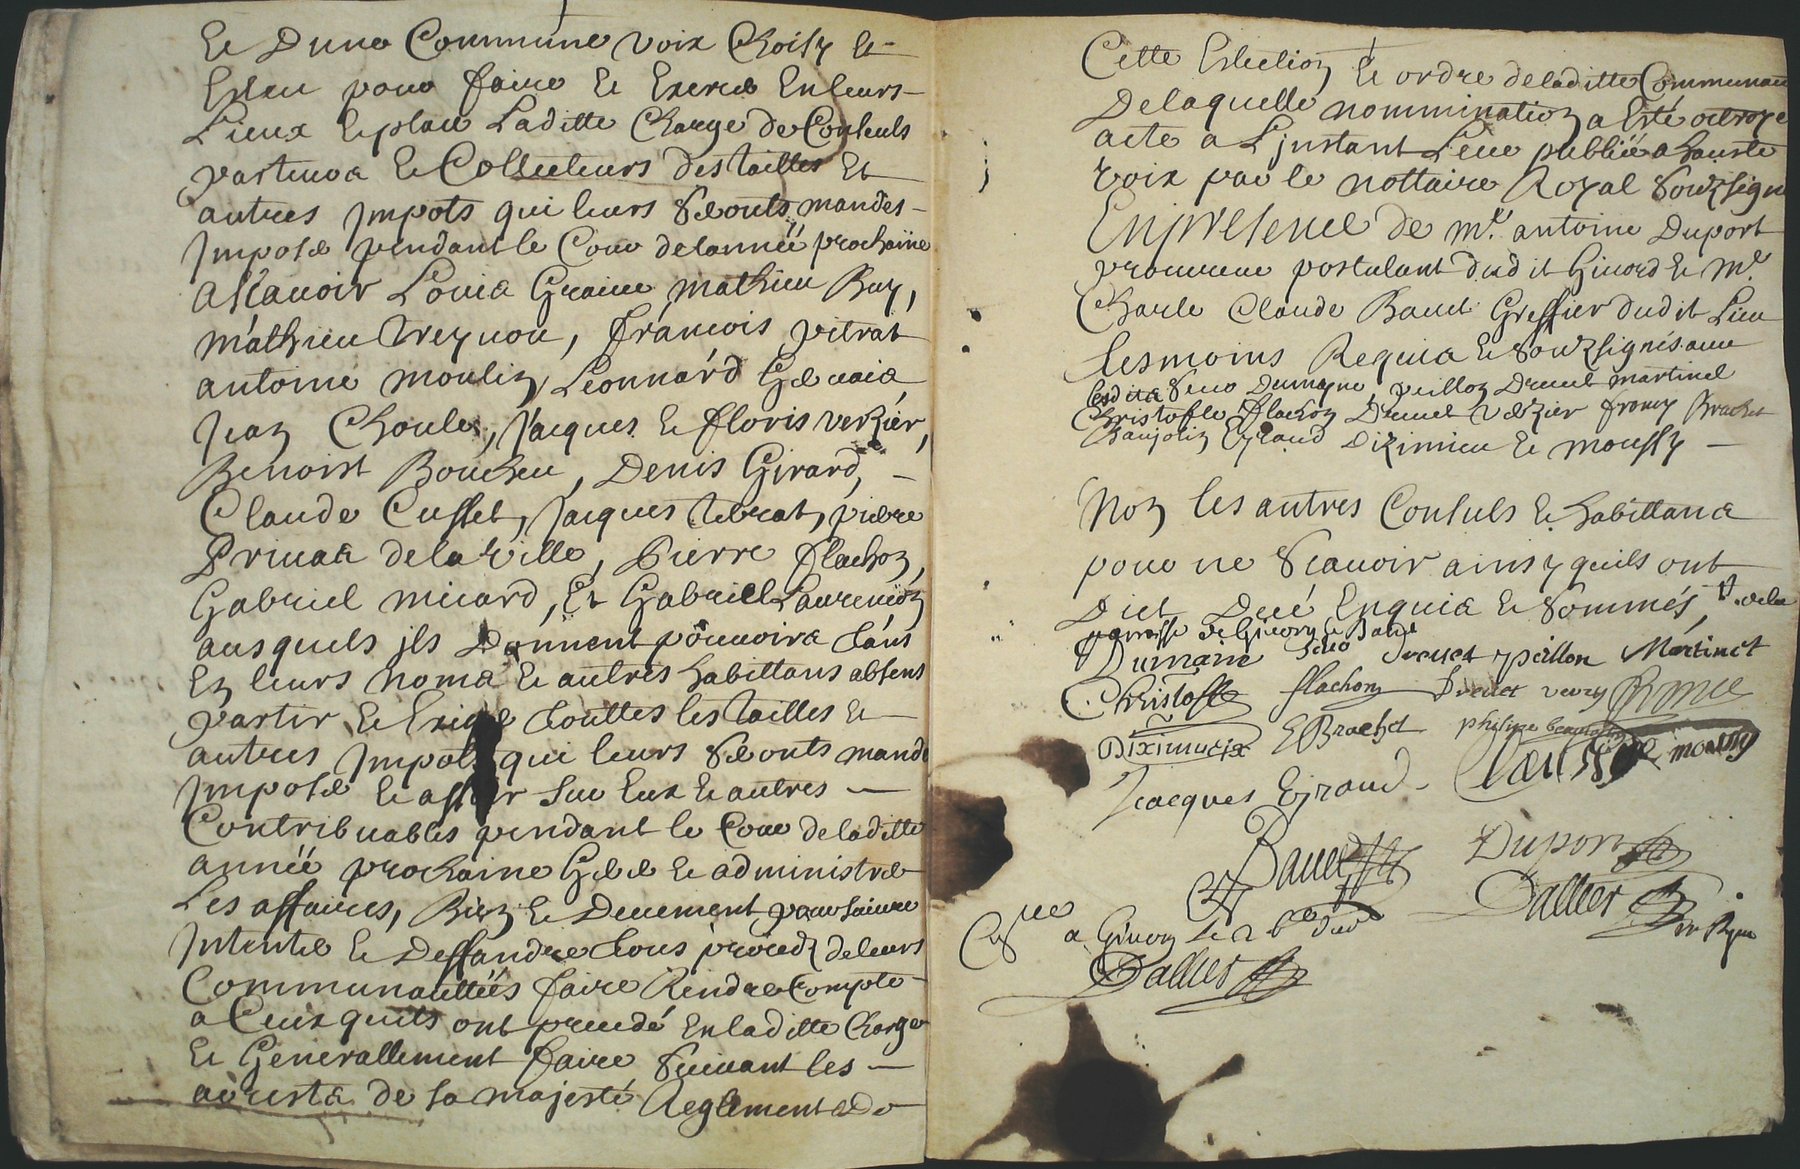 Et Dune Commune voix Choisy et
Esleu pour faire et Exercer En leurs
Lieux et place Laditte Charge de Consuls
partenoa et Collecteurs des tailles Et
autres Impots qui leurs seronts mandes
Imposé pendant le Cour de lannée prochaine
a scavoir Louis Graine mathieu Ruy,
mathieu Treynou, francois pitrat
antoine moulin, Leonnard Gervais
Jean Choule, Jacques et floris verzier,
Benoist Boucheu, Denis Girard,
Claude Cusset, Jacques tebrat, pierre
Privas de la Ville, Pierre flachon,
Gabriel micard, Et Gabriel Laurenson
ausquels ils Donnent pouvoirs tans
En leurs noms et autres habittans absens
partir et Exiger touttes les tailles et
autres Impots qui leurs seronts mandé
Imposé et assoir sur Eux et autres
Contribuables pendant le Cour de laditte
année prochaine Gerer et administrer
Les affaires, Bien et Deuement poursuivre
Intenter et Deffandre tous procedz de leurs
Communauttées faire Rendre Compte
a Ceux quils ont precedé En laditte Charge
et Generallement faire suivant les
arrests de sa majesté Reglement de
Cette Eslection et ordre de laditte Communau
De laquelle nommination a Esté octroyé
acte a L'instant Leue publiée a hauste
Voix par le nottaire Royal Souzsigné
En presence de Mr. antoine Duport
procureur postulant dudit Givord et Mr.
Charle Claude Bauet Greffier dudit Lieu
tesmoins Requis et souzsignés avec
lesdits Sieurs Dumayne peillon Drevet martinet
Christofle flachon Drevet verzier fromy Brachet
Baujolin Eyraud Diximieu et moussy
Non les autres Consuls et habittans
pour ne scavoir ainsy quils ont
Dict De ce Enquis et sommés, de la
parroisse de Givors
Dumaine Drevet peillon Martinet
Christofle flachon Drevet
Diximieux EBrachet philippe beaujolin
Jacques Eyraud moussy
Bauet Duport
Dallier
a Givors le
Dallier